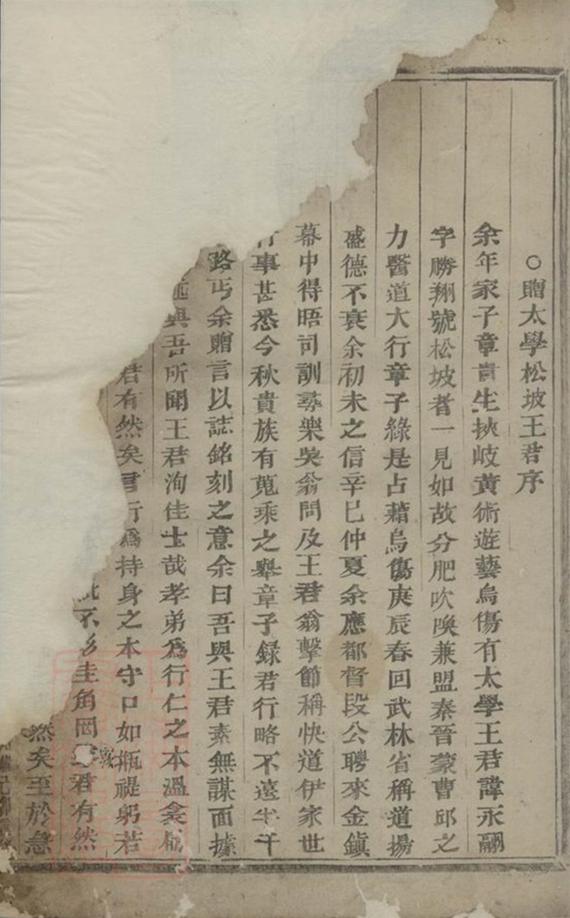 ○贈太學松坡王君序
余年家子章貢生挾岐黃術遊藝烏傷有太學王君諱永翮
字勝翔號松坡者一見如故分肥吹喚兼盟秦晉蒙曹邱之
力醫道大行章子緣是占藉烏傷庚辰春回武林省稱道揚
盛德不衰余初未之信辛巳仲夏余應都督段公聘來金鎮
幕中得晤司訓尋樂吳翁問及王君翁擊節稱快道伊家世
行事甚悉今秋貴族有蒐乘之舉章子録君行略不遠半千
路丐余贈言以誌銘刻之意余曰吾與王君素無謀面據
述與吾所聞王君洵佳士哉孝弟為行仁之本溫衾
君有然矣言行為持身之本守口如瓶禔躬若
不形圭角岡 君有然
然矣至於急